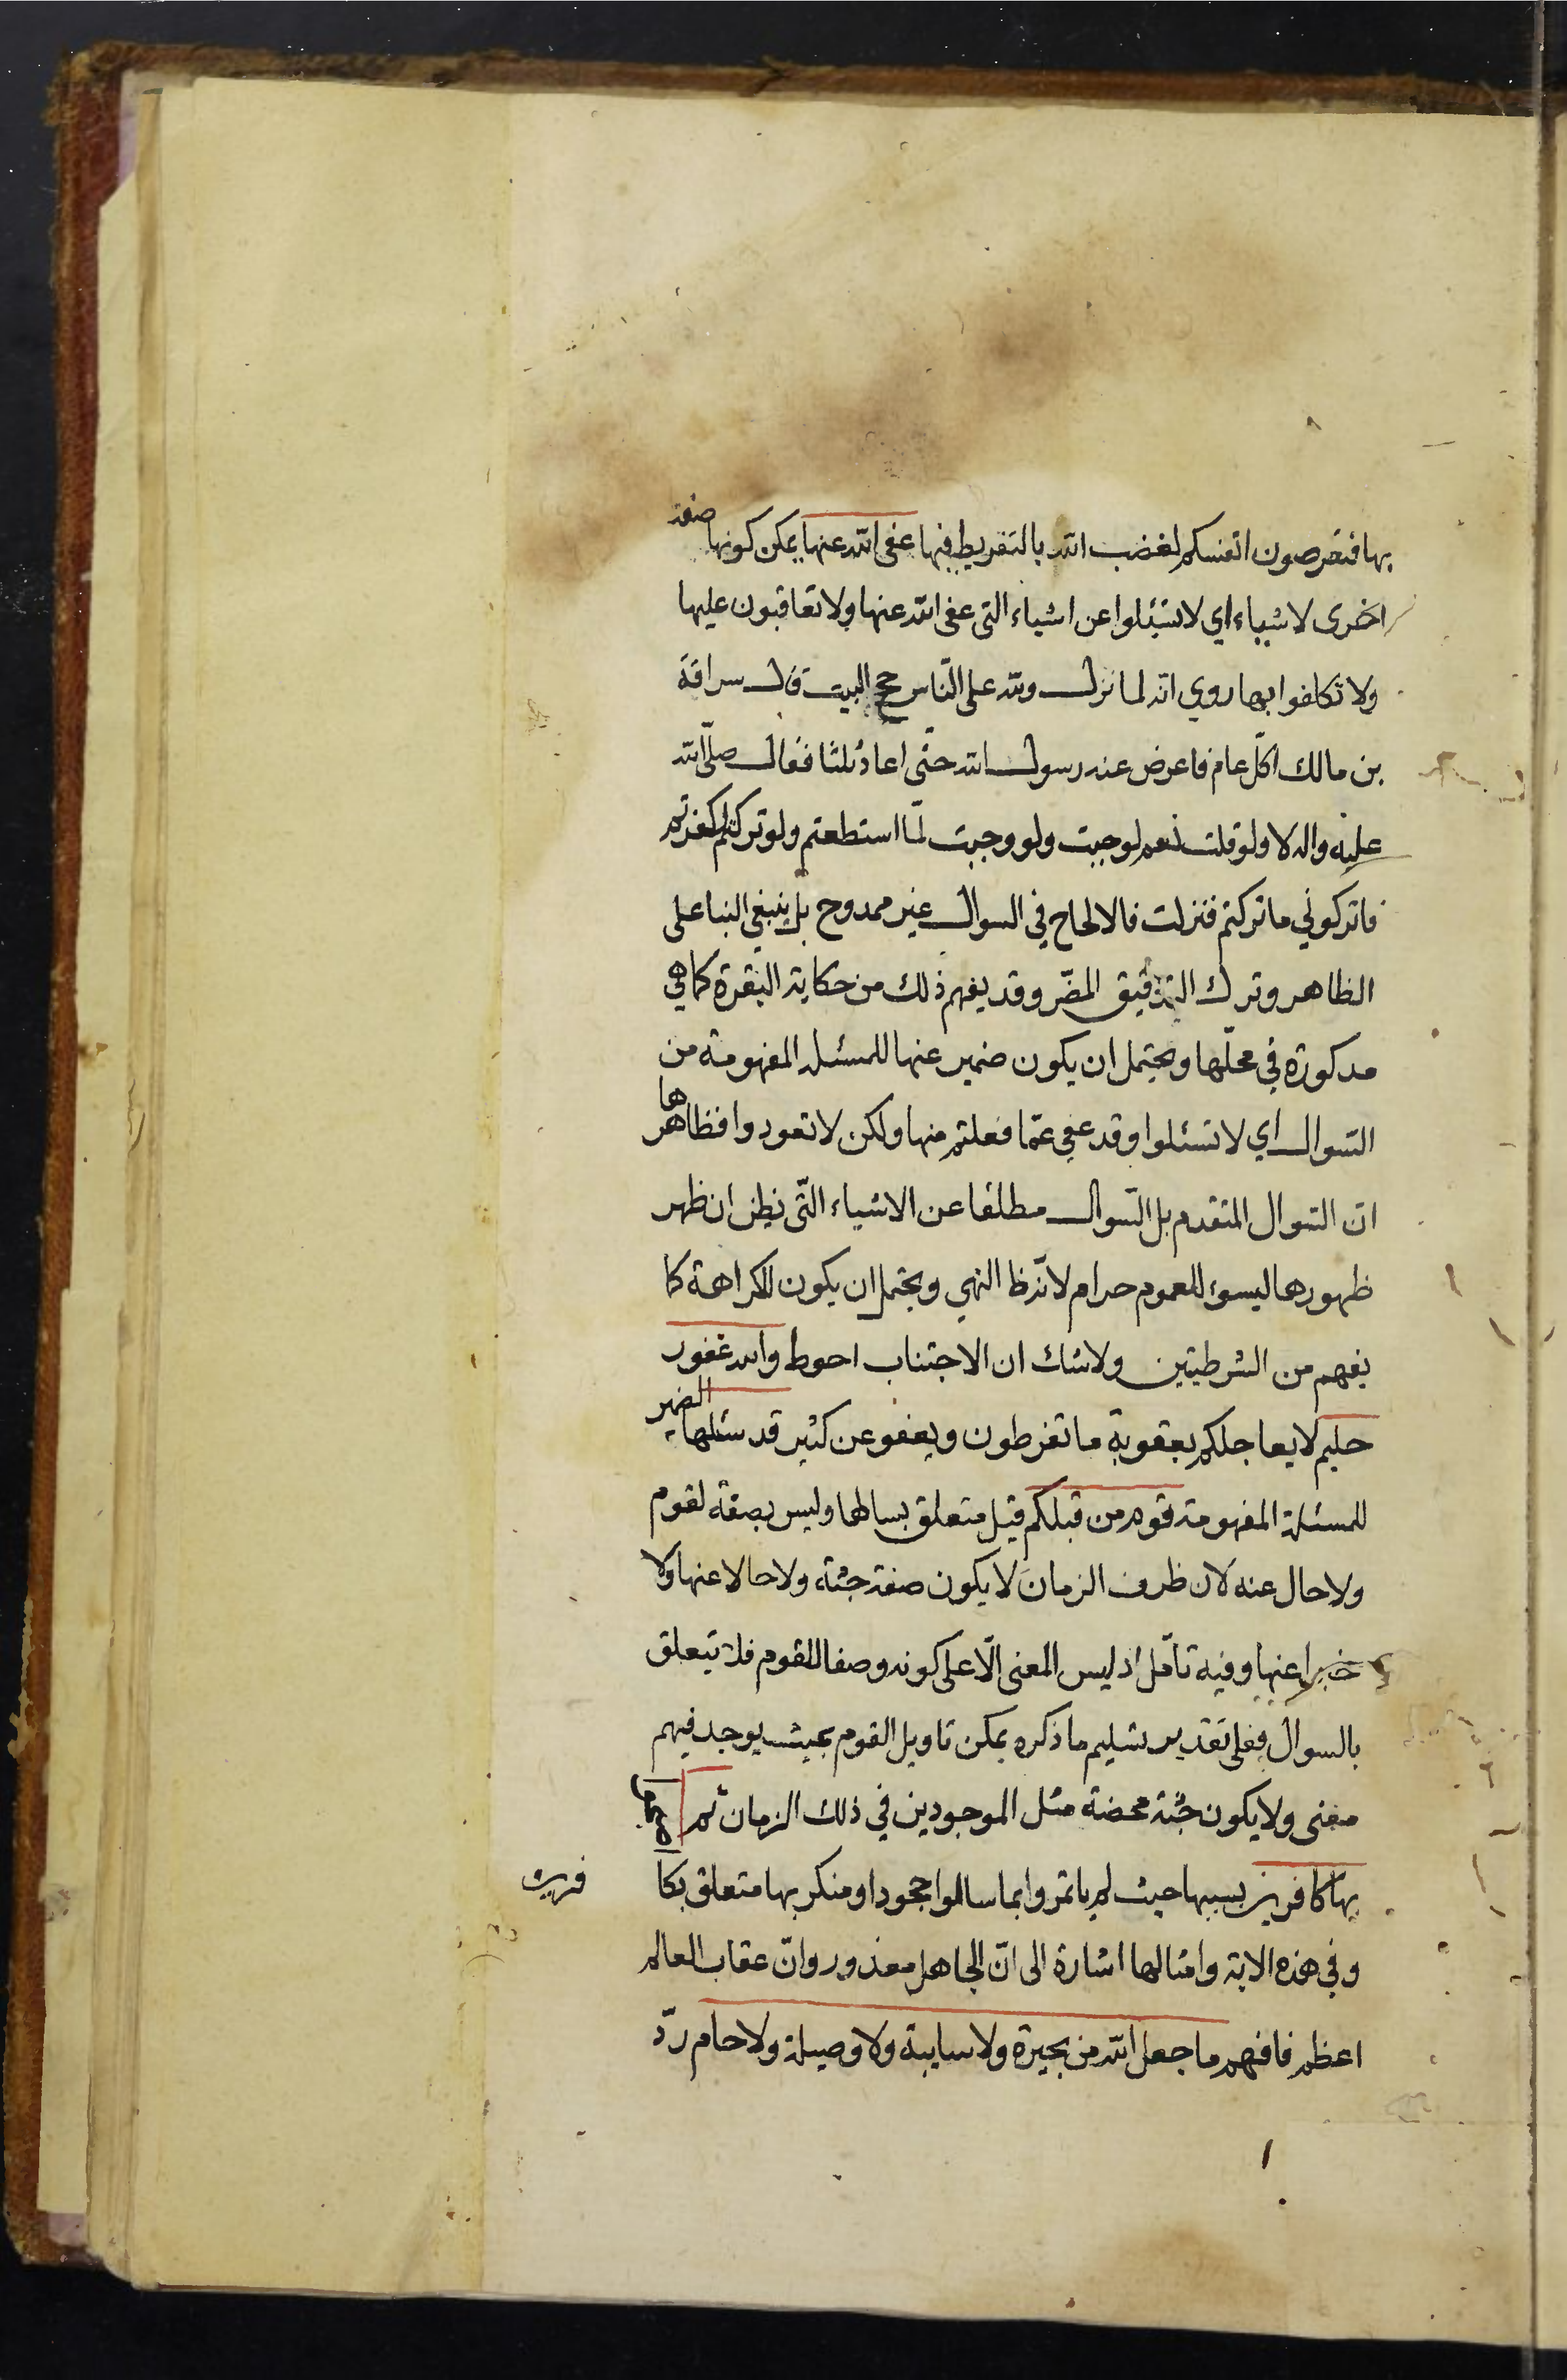 بها فتعرضون انفسكم لغضب الله بالتفريط فيها عفى الله عنها يمكن كونها صفة
اخرى لاشياء اي لا تسئلوا عن اشياء التى عفى الله عنها ولا تعاقبون عليها
ولا تكلفوا بها روي انه لما نزل ولله على الناس حج البيت قال سراقة
بن مالك اكلّ عام فاعرض عنه رسول الله حتى اعاد ثلثا فقال صلّى الله
عليه واله لا ولو قلت نعم لوجبت ولو وجبت لمّا استطعتم ولو تركتم لكفرتم
فاتركوني ما تركتم فنزلت فالالحاح في السوال غير ممدوح بل ينبغي البنا على
الظاهر وترك التدقيق المضّر وقد يفهم ذلك من حكاية البقرة كما هي
مذكورة في محلّها ويحتمل ان يكون ضمير عنها للمسئلة المفهومة من
السّوال اي لا تسئلوا وقد عفي عمّا فعلتم منها ولكن لا تعودوا فظاهرها
انّ السّوال المتقدم بل السّوال مطلقا عن الاشياء الّتى نظن ان ظهر
ظهورها ليسوء للعموم حرام لانّه ظا النهي ويحتمل ان يكون للكراهة كما
يفهم من الشرطيتين ولا شك ان الاجتناب احوط والله غفور
حليم لا يعاجلكم بعقوبة ما تفرطون ويعفو عن كثير قد سئلها الضمير
للمسئلة المفهومة قوم من قبلكم قيل متعلق بسالها وليس بصفة لقوم
ولا حال عنه لان ظرف الزمان لا يكون صفة جثة ولا حالا عنها ولا
خبرا عنها وفيه تأمّل اذ ليس المعنى الّا على كونه وصفا للقوم فلا يتعلق
بالسوال فعلى تقدير تسليم ما ذكره يمكن تاويل القوم بحيث يوجد فيهم
معنى ولا يكون جثة محضة مثل الموجودين في ذلك الزمان ثم
بها كافرين بسببها حيث لم ياتمروا بما سالوا جحودا او منكر بها متعلق بكا
فرين
وفي هذه الاية وامثالها اشارة الى انّ الجاهل معذور وانّ عقاب العالم
اعظم فافهم ما جعل الله من بحيرة ولا سايبة ولا وصيلة ولا حام ردّ